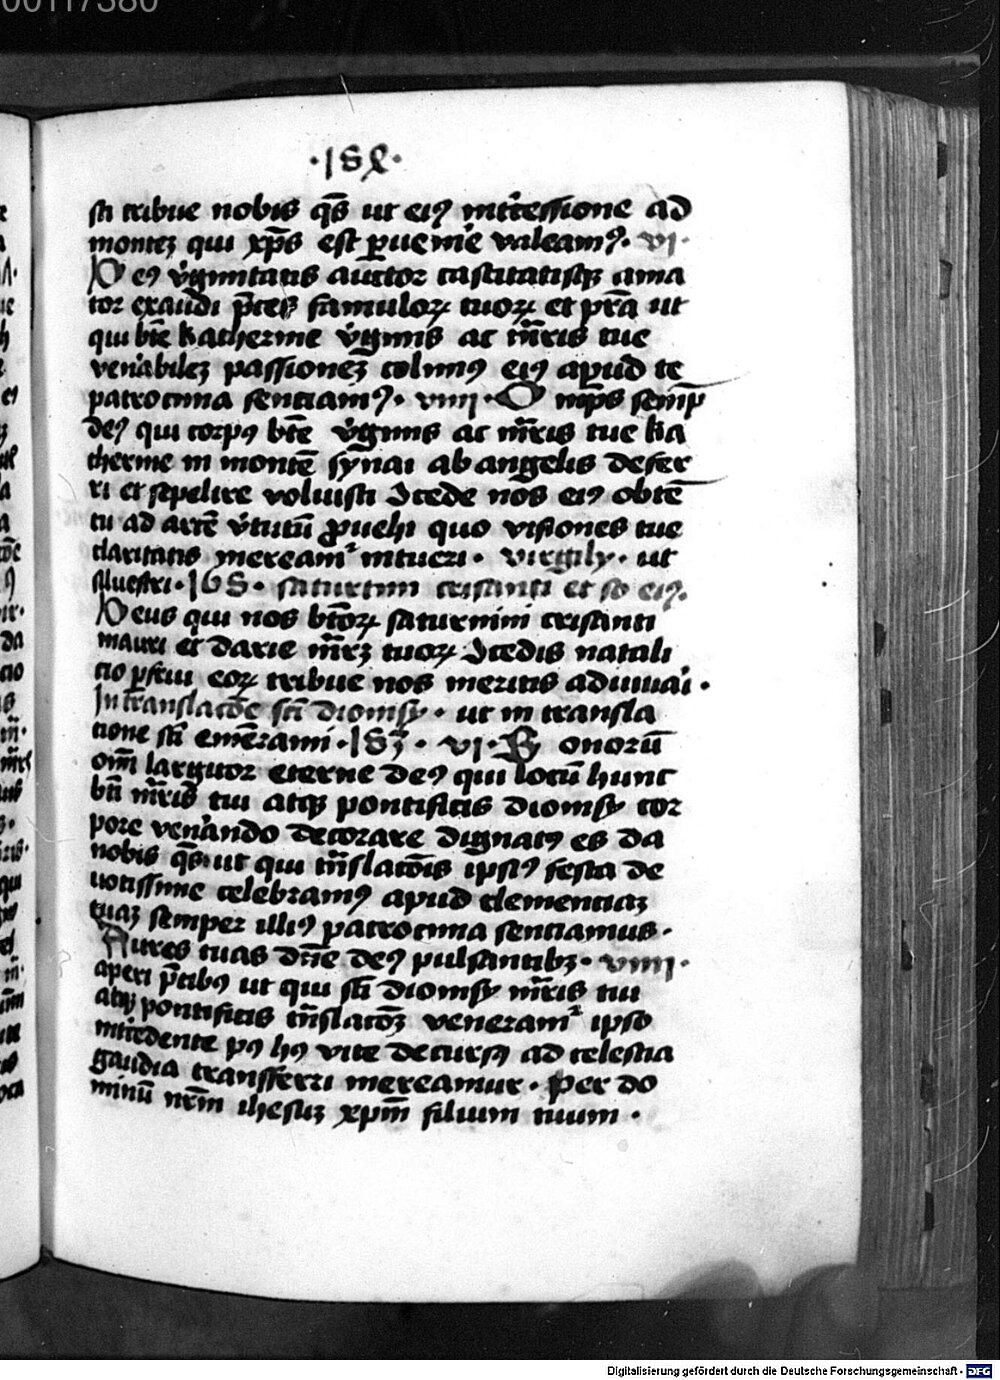 00117380
·184·
sti tribue nobis q̄s ut eiꝰ int̄cessione ad
montē qui xp̄s est ꝑuenir̄e valeamꝰ· vi·
Deꝰ v̓ginitatis auctor castitatisqꝫ ama
tor exaudi p̄ces famuloꝝ tuoꝝ et p̄sta ut
qui bt̄e katherine v̓ginis ac m̄ris tue
ven̓abilē passionē colimꝰ eiꝰ apud te
patrocinia sentiamꝰ· viiii· O mp̄s semꝑ
deꝰ qui corpꝰ bt̄e v̓ginis ac m̄ris tue ka
therine in montē synai ab angelis defer
ri et sepelire voluisti 9cede nos eiꝰ obtē
tu ad arcē v̓tutū ꝓuehi quo visiones tue
claritatis meream̄ intueri· virgilij· ut
silvestri· 168· saturnini crisanti et so eiꝰ.
Deus qui nos bt̄oꝝ saturnini crisanti
mauri et darie m̄rꝫ tuoꝝ 9cedis natali
cio ꝑfrui eoꝝ tribue nos meritis adiuuai·
In translac̄oe sc̄i dionisij· ut in transla
tione sc̄i em̄erami· 183· vi· B onorū
om̄ largitor eterne deꝰ qui locū hunc
bt̄i m̄ris tui atqꝫ pontificis dionisij cor
pore ven̓ando decorare dignatꝰ es da
nobis q̄s ut qui t̄nslac̄ōis ipsiꝰ festa de
uotissime celebramꝰ apud clementiaꝫ
tuaꝫ semper illiꝰ patrocinia sentiamus·
Aures tuas dn̄e deꝰ pulsantibꝫ· viiii·
aperi p̄cibꝰ ut qui sc̄i dionisij m̄ris tui
atqꝫ pontificis t̄nslac̄oꝫ veneram̄ ipso
int̄cedente pꝰ hꝰ vite decursꝰ ad celestia
gaudia transferri mereamur· per do
minū nr̄m ihesuꝫ xp̄m filium tuum·
Digitalisierung gefördert durch die Deutsche Forschungsgemeinschaft - DFG